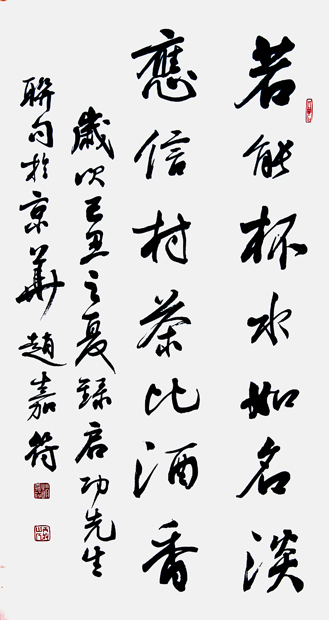 若能杯水如名淡
應信村茶比酒香
歲次己丑之夏錄启功先生
聯句於京華趙嘉符